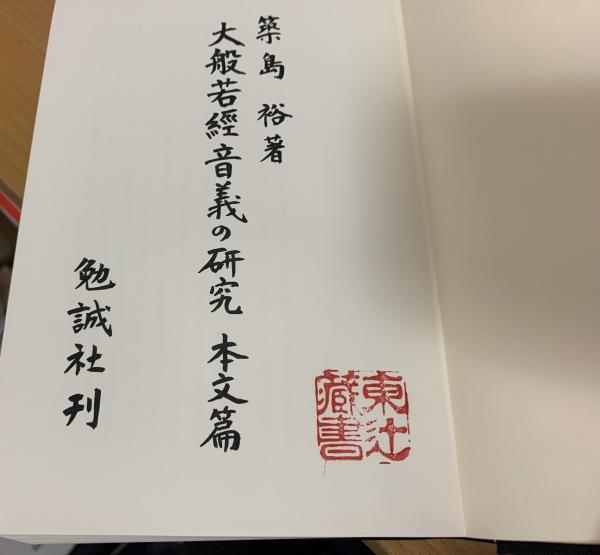 築島 裕著
大般若經音義の研究 本文篇
勉誠社刊
東辻
藏書